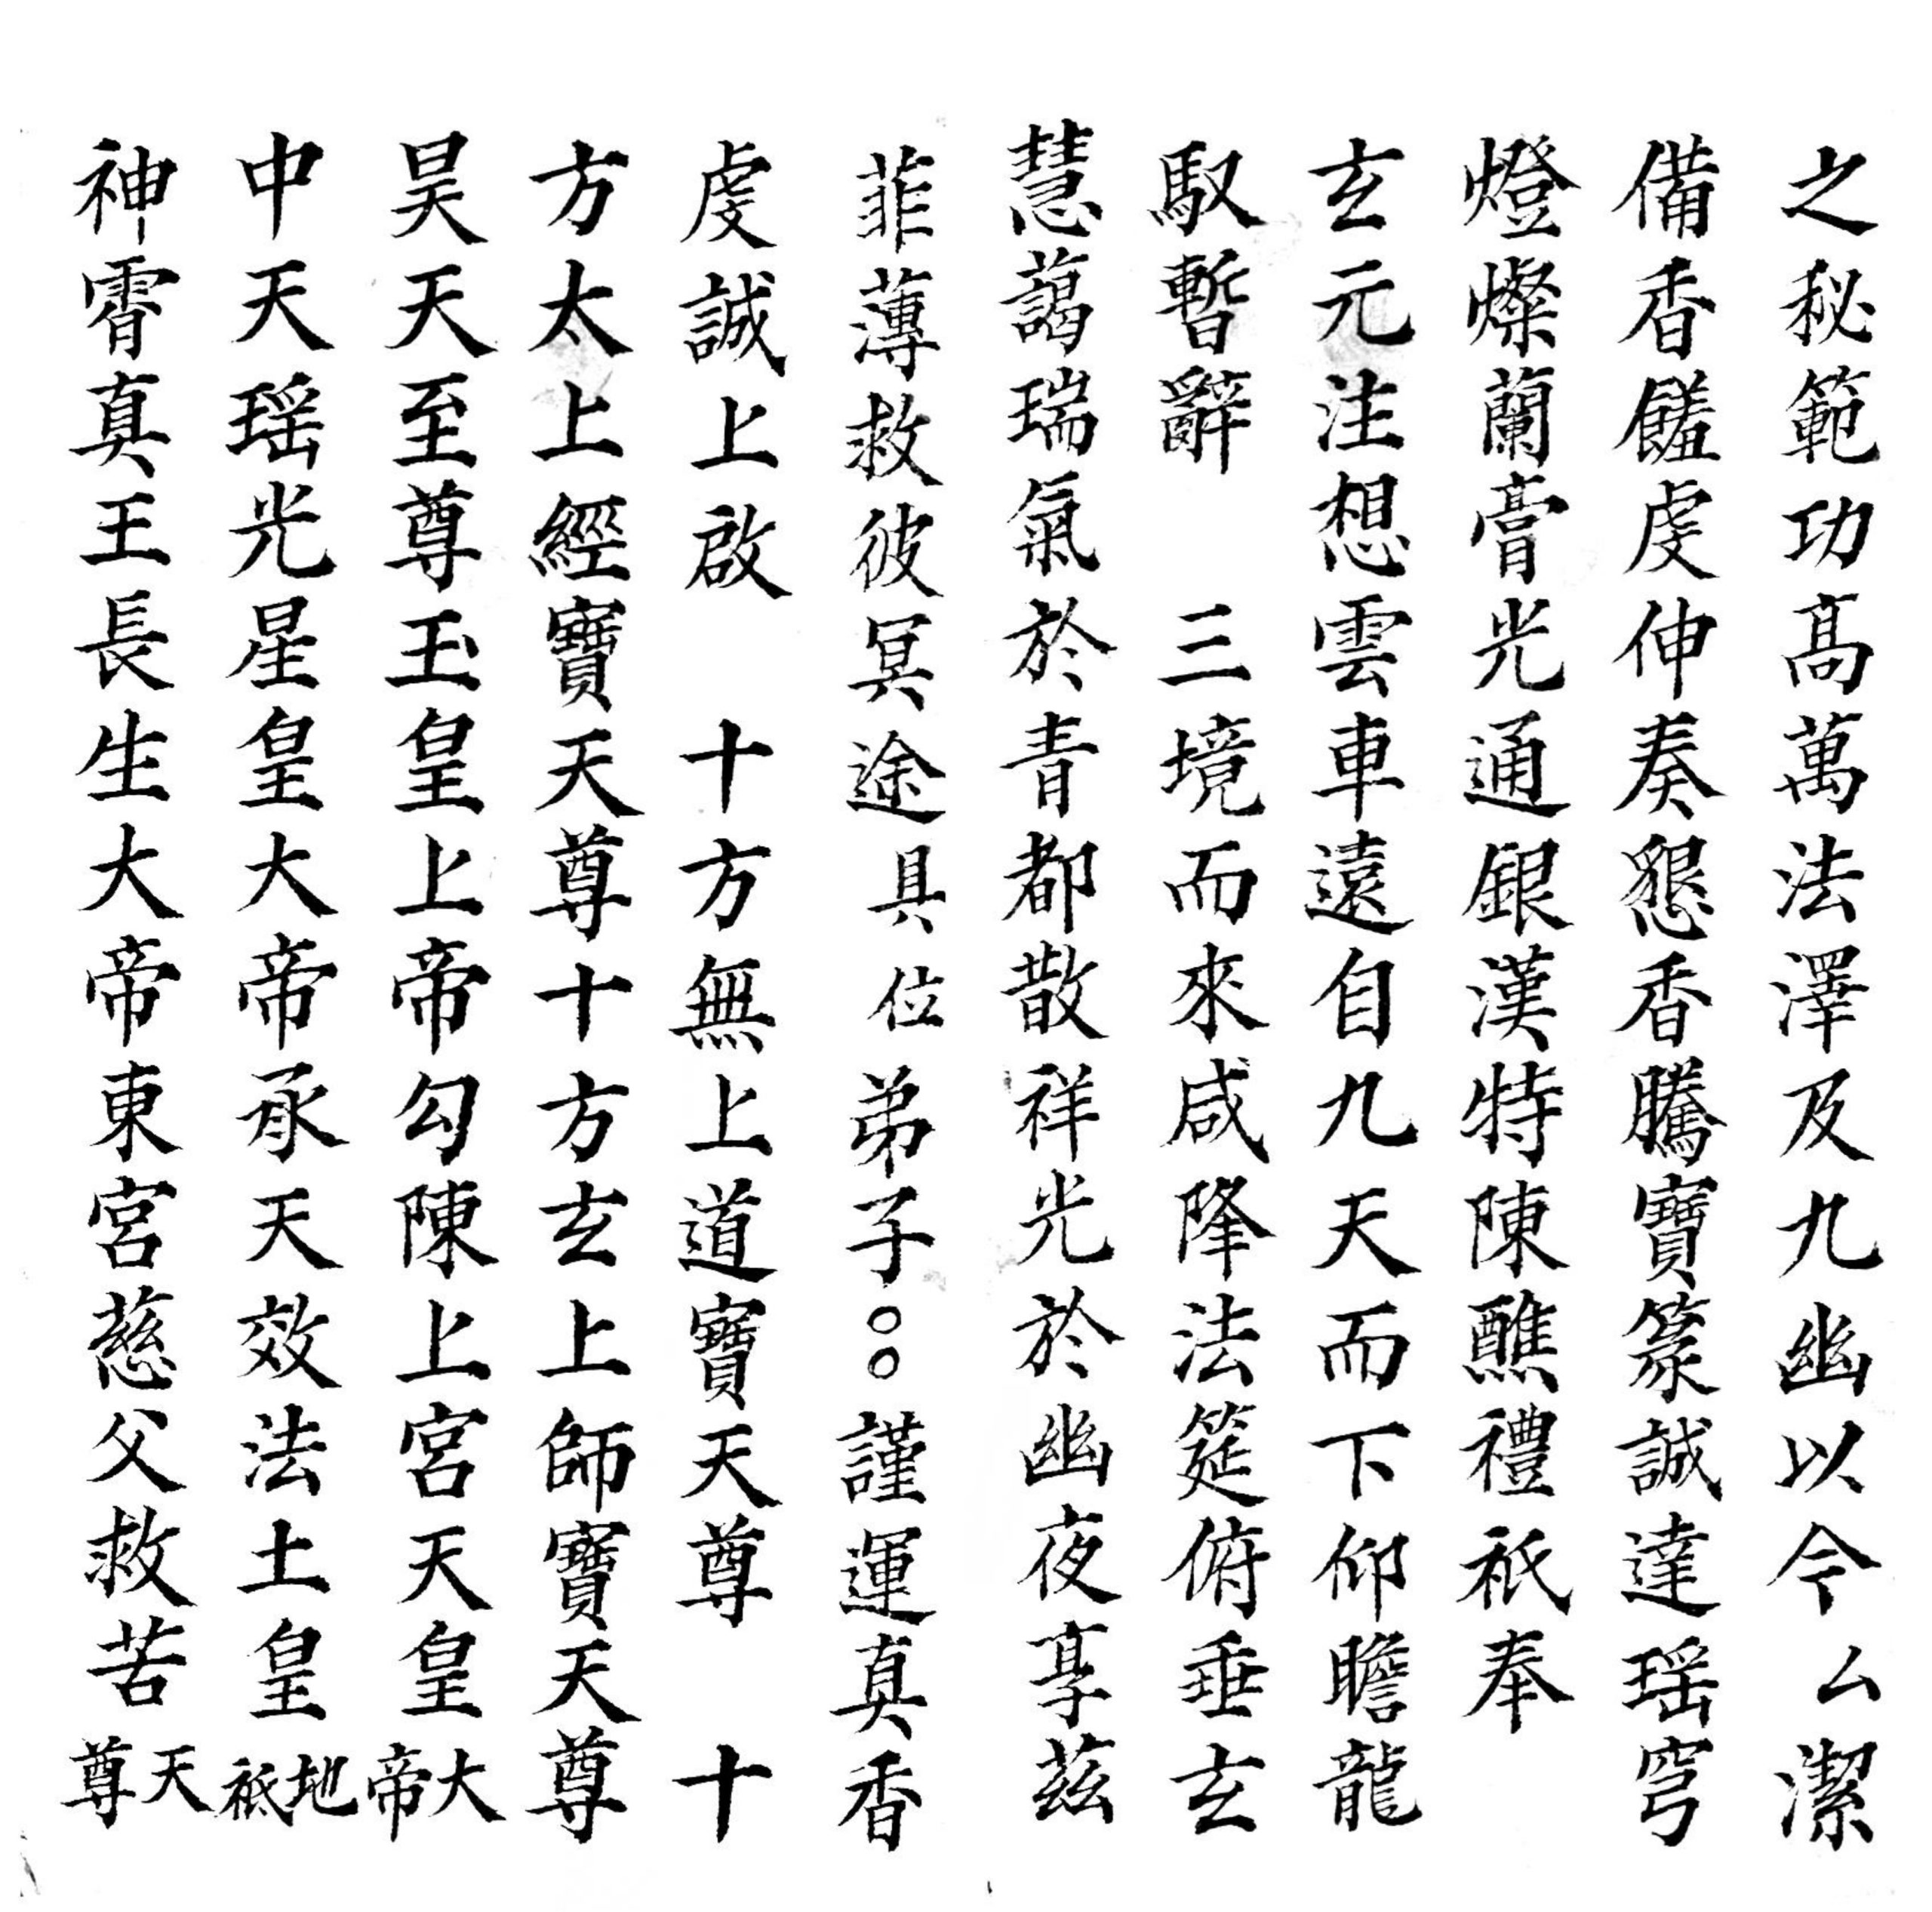 之秘範功高萬法澤及九幽以今厶潔
備香饈虔伸奏懇香騰寶篆誠達瑶穹
燈燦蘭膏光通銀漢特陳醮禮祇奉
玄元注想雲車遠自九天而下仰瞻龍
馭暫辭　三境而來咸降法筵俯垂玄
慧藹瑞氣於青都散祥光於幽夜享茲
菲薄救彼冥途具位弟子○○謹運真香
虔誠上啟　十方無上道寶天尊　十
方太上經寶天尊十方玄上師寶天尊
昊天至尊玉皇上帝勾陳上宮天皇大帝
中天瑶光星皇大帝承天效法土皇地祇
神霄真王長生大帝東宮慈父救苦天尊